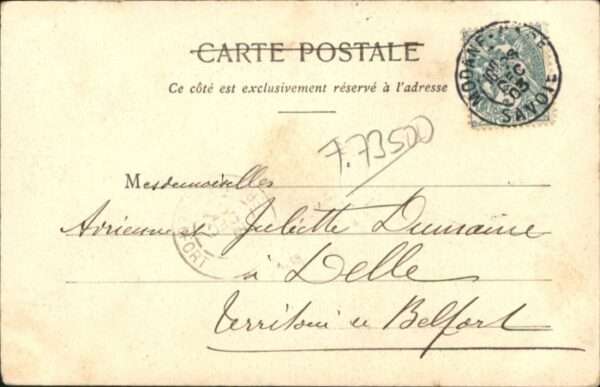 CARTE POSTALE
Ce côté est exclusivement réservé à l'adresse
MODANE-GARE
DÉC
03
SAVOIE
7.73500
Mesdemoiselles
Adrienne et Juliette Dumaine
à Delle
Territoire de Belfort
FORT